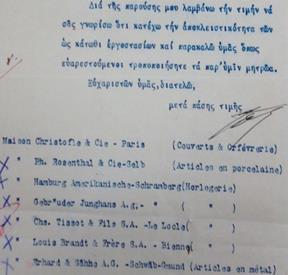 Διά τῆς παρούσης μου λαμβάνω τήν τιμήν νά
σᾶς γνωρίσω ὅτι κατέχω τήν ἀποκλειστικότητα τῶν
ὡς κάτωθι ἐργοστασίων καί παρακαλῶ ὑμᾶς ὅπως
εὐαρεστούμενοι τροποποιήσητε τά παρ'ὑμῖν μητρῶα.
Εὐχαριστῶν ὑμᾶς, διατελῶ,
μετά πάσης τιμῆς
Maison Christofle & Cie - Paris (Couverts & Orfévrerie)
X " Ph. Rosenthal & Cie-Selb (Articles en porcelaine)
" Hamburg Amerikanische-Schramberg (Horlogerie)
X " Gebruder Junghans A.g.- " ( " )
X " Chs. Tissot & Fils S.A. -Le Locle( " )
X " Louis Brandt & Frère S.A. - Bienne( " )
X " Erhard & Söhne A.G. -Schwäb-Gmund (Articles en métal)